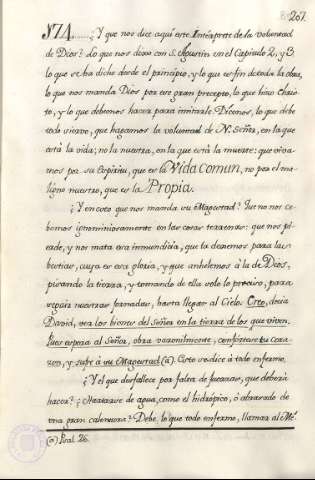 207.
574. ¿Y que nos dice aquí este Intérprete de la voluntad
de Dios? Lo que nos dexo con S. Agustin en el Capitulo 2, y 3.
lo que se ha dicho desde el principio, y lo que es fin de toda la obra,
lo que nos manda Dios por ese gran precepto, lo que hizo Chris-
to, y lo que debemos hacer para imitarle. Dícenos, lo que debe
todo siervo, que hagamos la voluntad de N. Señor, en la que
está la vida; no la nuestra, en la que está la muerte: que viva-
mos por su Espíritu, que es la Vida comun, no por el ma-
ligno nuestro, que es la Propia.
¿Y en esto que nos manda su Magestad? Que no nos ce-
bemos ignominiosamente en las cosas terrenas: que nos pi-
erde, y nos mata esa inmundicia, que la dexemos para las
bestias, cuya es esa gloria, y que anhelemos á la de Dios,
pisando la tierra, y tomando de ella solo lo preciso, para
seguir nuestras jornadas, hasta llegar al Cielo. Esto, decia
David, vea los bienes del Señor en la tierra de los que viven.
Pues espera al Señor, obra varonilmente, confórtese tu cora-
zon, y sufre á su Magestad (a). Esto se dice á todo enfermo.
¿Y el que desfallece por falta de fuerzas, que deberá
hacer? ¿Hartarse de agua, como el hidrópico, ó abrasado de
una gran calentura? Debe, lo que todo enfermo, llamar al Mé-
(a) Psal. 26.